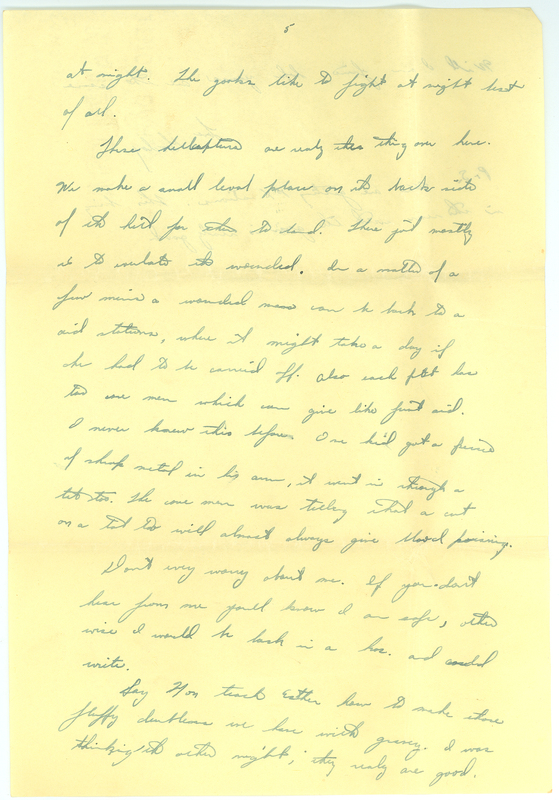 5
at night. The gooks like to fight at night best
of all.
These helicopters are realy the thing over here.
We make a small level place on the back side
of the hill for them to land. There job mostly
is to evacute the wounded. In a matter of a
few mins a wounded man can be back to a
aid stations, where it might take a day if
he had to be carried off. Also each plt has
two core men which can give like first aid.
I never knew this before. One kid got a pieced
of shrap metal in his arm, it went in through a
tatoo. The core man was telling that a cut
on a tatoo will almost always give blood poising.
Don't ever worry about me. If you don't
hear from me you'll know I am safe, other
wise I would be back in a hos. and could
write.
Say Mom teach Esther how to make those
fluffy dumblens we have with gravy. I was
thinking the other night, they realy are good.